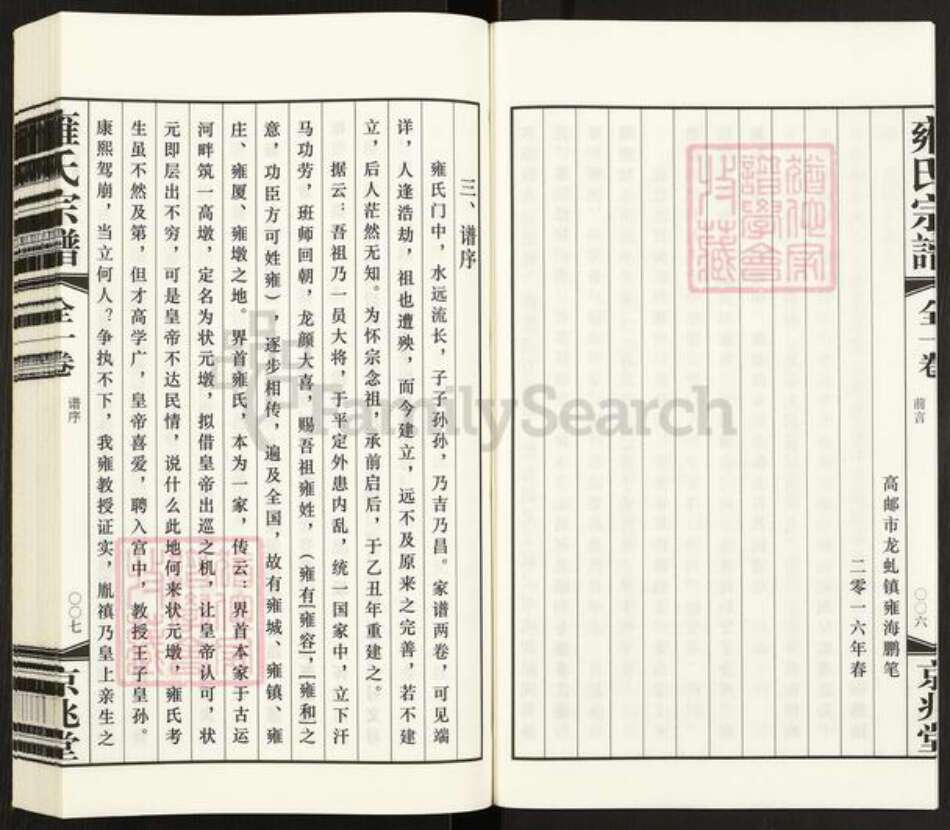 雍氏宗谱
全一卷
前言
〇〇六
京兆堂
高邮市龙虬镇雍海鹏笔
二零一六年春
三、谱序
雍氏门中，水远流长，子子孙孙，乃吉乃昌。家谱两卷，可见端
详，人逢浩劫，祖也遭殃，而今建立，远不及原来之完善，若不建
立，后人茫然无知。为怀宗念祖，承前启后，于乙丑年重建之。
据云：吾祖乃一员大将，于平定外患内乱，统一国家中，立下汗
马功劳，班师回朝，龙颜大喜，赐吾祖雍姓，（雍有[雍容]，[雍和]之
意，功臣方可姓雍），逐步相传，遍及全国，故有雍城、雍镇、雍
庄、雍厦、雍墩之地。界首雍氏，本为一家，传云：界首本家于古运
河畔筑一高墩，定名为状元墩，拟借皇帝出巡之机，让皇帝认可，状
元即层出不穷，可是皇帝不达民情，说什么此地何来状元墩，雍氏考
生虽不然及第，但才高学广，皇帝喜爱，聘入宫中，教授王子皇孙。
康熙驾崩，当立何人？争执不下，我雍教授证实，胤禛乃皇上亲生之
雍氏宗谱
全一卷
谱序
〇〇七
京兆堂
FamilySearch